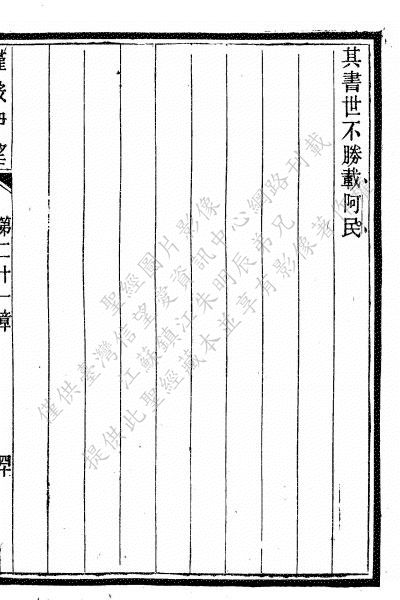 其書世不勝載阿民
第二十一章
聖經圖片影像
僅供臺灣信望愛資訊中心網路刊載
江蘇鎮江朱明辰弟兄
提供此聖經藏本並享有影像著